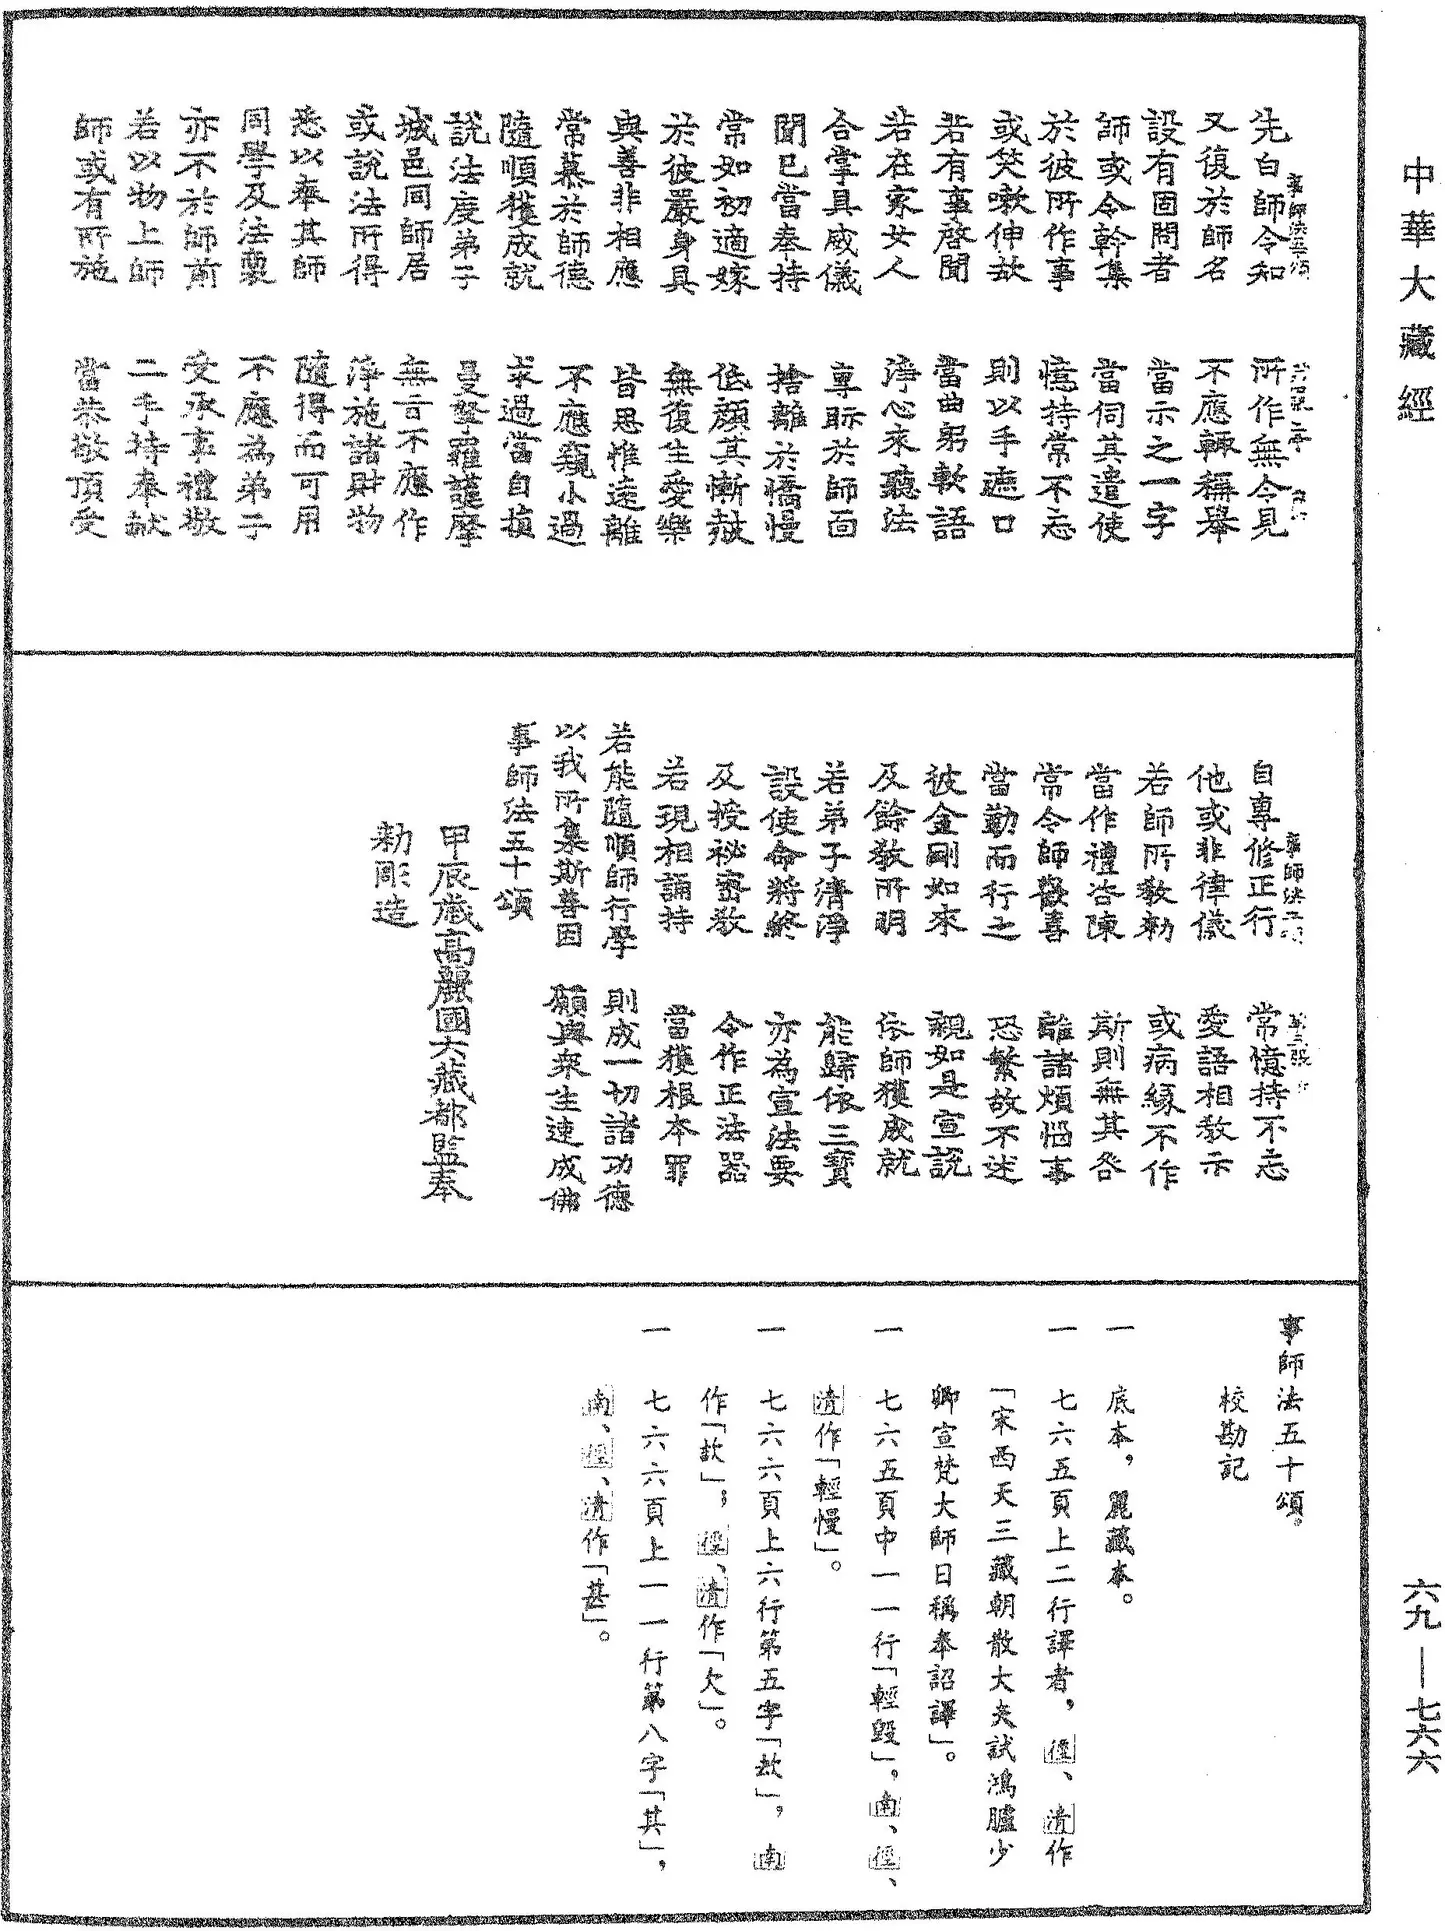 中華大藏經
先白師令知　所作無令見
又復於師名　不應輒稱舉
設有固問者　當示之一字
師或令幹集　當伺其遣使
於彼所作事　憶持常不忘
或笑嗽伸欬　則以手遮口
若有事啓聞　當曲躬軟語
若在家女人　淨心來聽法
合掌具威儀　專眎於師面
聞已當奉持　捨離於憍慢
常如初適嫁　低顏其慚赧
於彼嚴身具　無復生愛樂
與善非相應　皆思惟遠離
常慕於師德　不應窺小過
隨順獲成就　求過當自損
說法度弟子　曼拏羅護摩
城邑同師居　無言不應作
或說法所得　淨施諸財物
悉以奉其師　隨得而可用
同學及法裔　不應為弟子
亦不於師前　受承事禮敬
若以物上師　二手持奉獻
師或有所施　當恭敬頂受
事師法二頌　第三張
自專修正行　常憶持不忘
他或非律儀　愛語相教示
若師所教勑　或病緣不作
當作禮咨陳　斯則無其咎
常令師歡喜　離諸煩惱事
當勤而行之　恐繁故不述
彼金剛如來　親如是宣說
及餘教所明　依師獲成就
若弟子清淨　能歸依三寶
設使命將終　亦為宣法要
及授祕密教　令作正法器
若現相誦持　當獲根本罪
若能隨順師行學　則成一切諸功德
以我所集斯善因　願與衆生速成佛
事師法五十頌
甲辰歲高麗國大藏都監奉
勑彫造
事師法五十頌。
校勘記
一　底本，麗藏本。
一　七六五頁上二行譯者，徑、清作
「宋西天三藏朝散大夫試鴻臚少
卿宣梵大師日稱奉詔譯」。
一　七六五頁中一一行「輕毀」，南、徑、
清作「輕慢」。
一　七六六頁上六行第五字「欬」，南
作「欬」；徑、清作「欠」。
一　七六六頁上一一行第八字「其」，
南、徑、清作「甚」。
六九—七六六